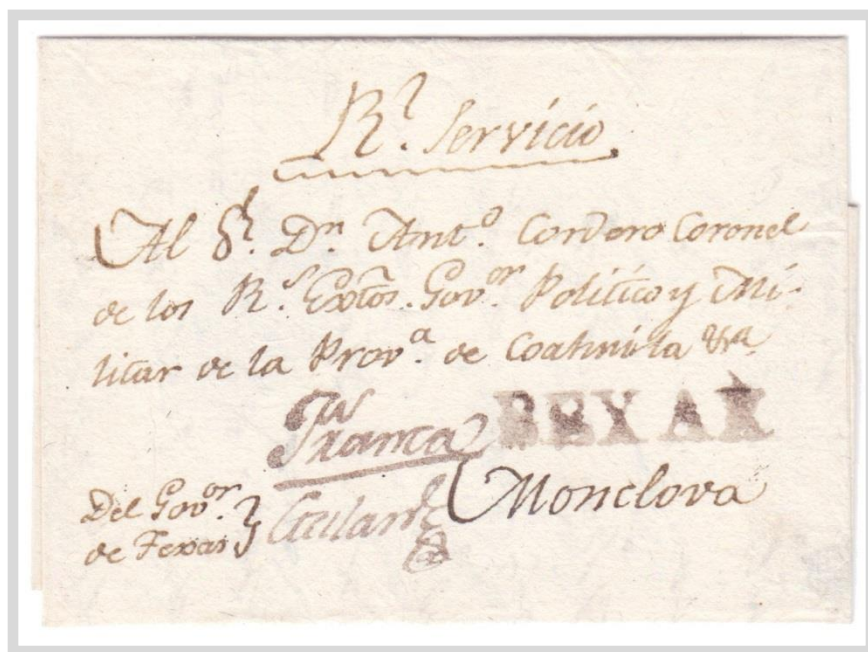 Rl. Servicio
Al Sr. Dn. Anto. Cordero Coronel
de los Rs. Extos. Govor. Politico y Mi-
litar de la Prova. de Coahuila &ra.
Franca BEXAR
Del Govor. Monclova
de Texas